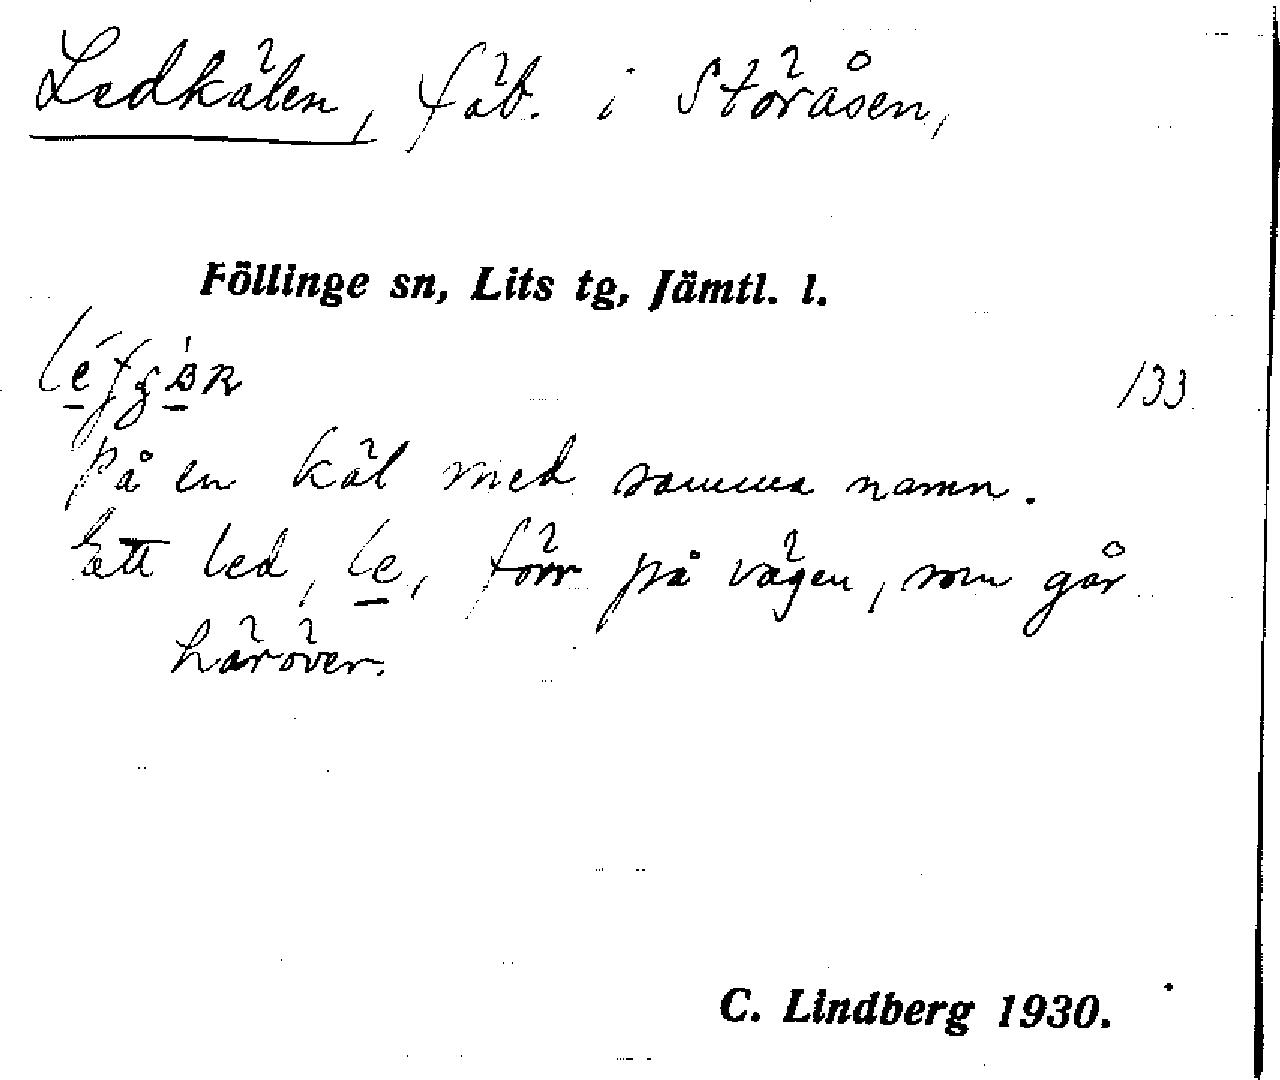 Ledkälen, fäb. i Störåsen,
Föllinge sn, Lits tg, Jämtl. l.
133
på en käl med samma namn.
Ett led, le, förr på vägen, som går
häröver.
C. Lindberg 1930.